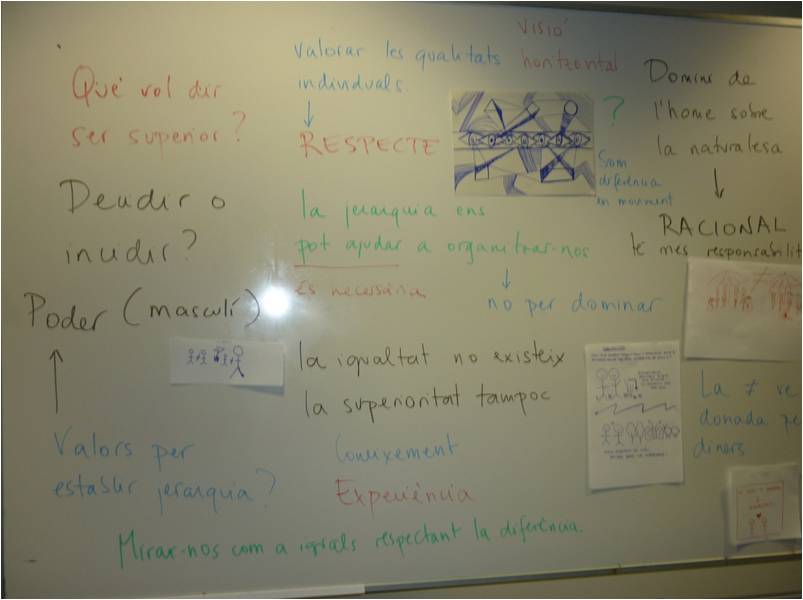 Què vol dir
ser superior?
Decidir o
incidir?
Poder (masculí)
Valors per
establir jerarquia?
valorar les qualitats
individuals.
RESPECTE
VISIÓ
horitzontal
?
Som
diferència
en moviment
la jerarquia ens
pot ajudar a organitzar-nos
És necessària
no per dominar
la igualtat no existeix
la superioritat tampoc
Coneixement
Experiència
Mirar-nos com a iguals respectant la diferència.
Domini de
l'home sobre
la naturalesa
RACIONAL
té més responsabilit
La ≠ ve
donada pe
diners